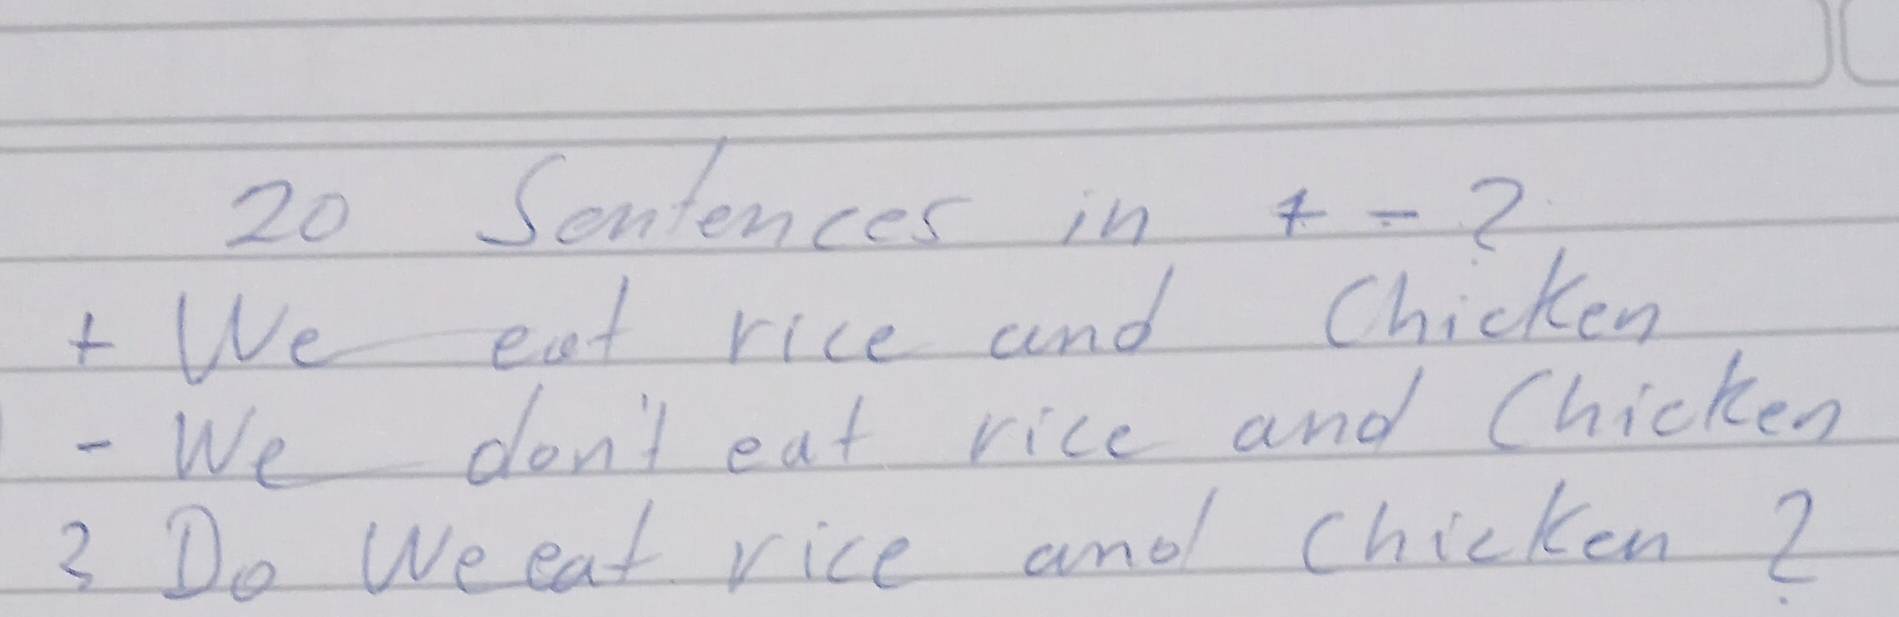 20 Sentences in + - ?
+ We eat rice and Chicken
- We don't eat rice and Chicken
? Do We eat rice and chicken ?